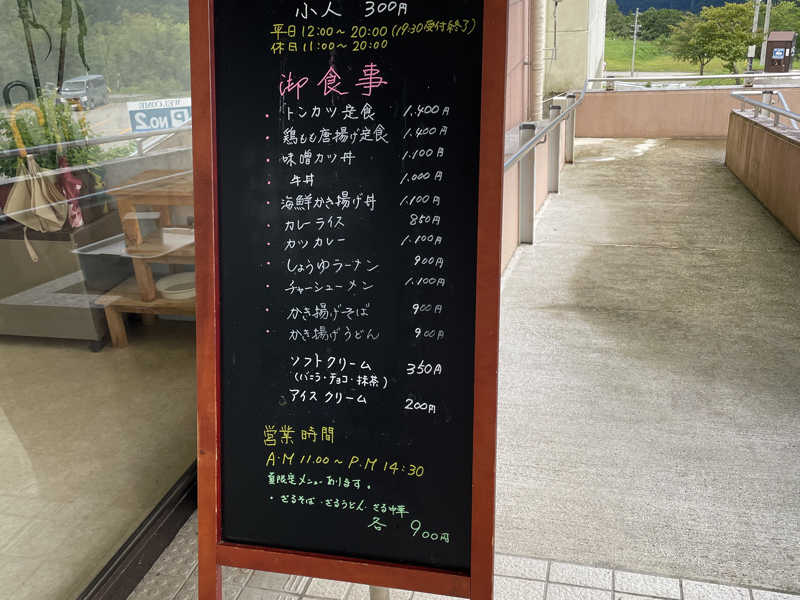 小人 300円
平日 12:00～20:00 (19:30受付終了)
休日 11:00～20:00
御食事
・トンカツ定食 1,400円
・鶏もも唐揚げ定食 1,400円
・味噌カツ丼 1,100円
・牛丼 1,000円
・海鮮かき揚げ丼 1,100円
・カレーライス 850円
・カツカレー 1,100円
・しょうゆラーメン 900円
・チャーシューメン 1,100円
・かき揚げそば 900円
・かき揚げうどん 900円
ソフトクリーム 350円
(バニラ・チョコ・抹茶)
アイスクリーム 200円
営業時間
A・M 11.00～P.M 14:30
夏限定メニューあります。
・ざるそば・ざるうどん・ざる中華
各 900円
WELCOME
P NO.2